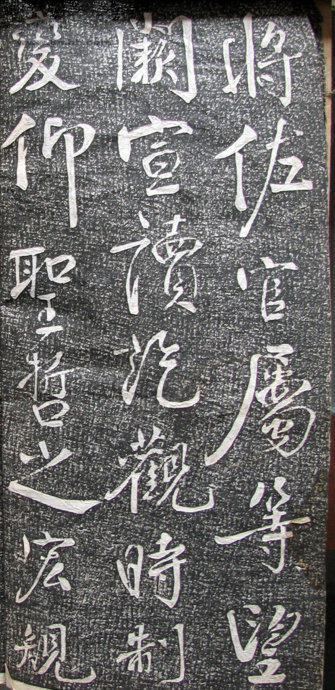 將佐官屬等望
闕宣讀訖觀時制
變仰聖哲之宏規